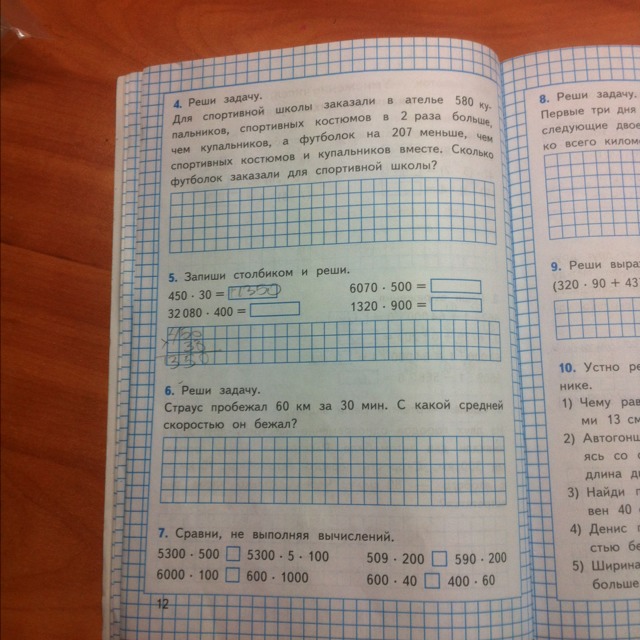 4. Реши задачу.
Для спортивной школы заказали в ателье 580 ку-
пальников, спортивных костюмов в 2 раза больше,
чем купальников, а футболок на 207 меньше, чем
спортивных костюмов и купальников вместе. Сколько
футболок заказали для спортивной школы?
5. Запиши столбиком и реши.
450 · 30 = 6070 · 500 =
32 080 · 400 = 1320 · 900 =
6. Реши задачу.
Страус пробежал 60 км за 30 мин. С какой средней
скоростью он бежал?
7. Сравни, не выполняя вычислений.
5300 · 500 5300 · 5 · 100 509 · 200 590 · 200
6000 · 100 600 · 1000 600 · 40 400 · 60
12
8. Реши задачу.
Первые три дня
следующие
ко всего
9. Реши
(320 · 90 +
10. Устно
нике.
1) Чему
ми 13
2)
ясь со
длина
3) Найди
вен 40
4) Денис
стью
5) Ширина
больше